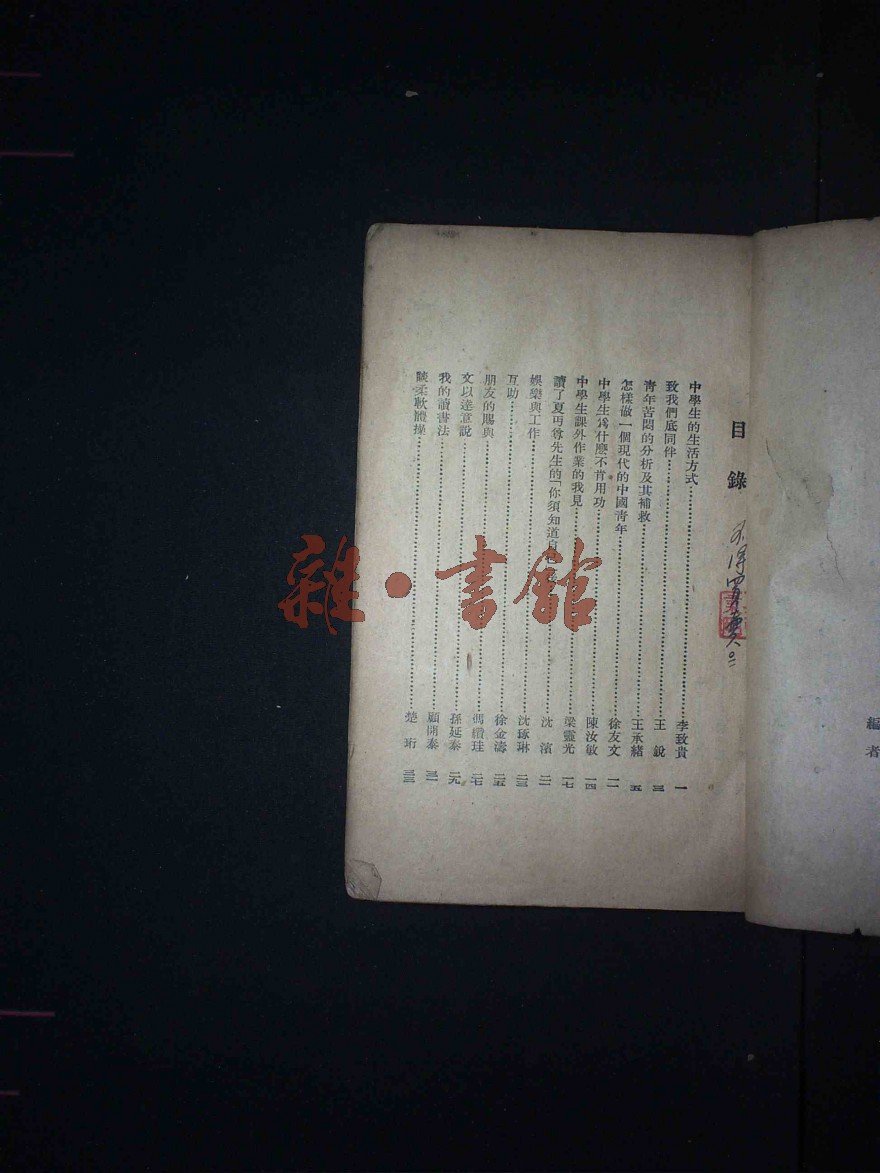 編者
目錄
中學生的生活方式 李致貴 一
致我們底同伴 王銳 三
靑年苦悶的分析及其補救 王承緖 五
怎樣做一個現代的中國靑年 徐友文 一一
中學生爲什麼不肯用功 陳汝敏 一四
中學生課外作業的我見 梁靈光 一七
讀了夏丏尊先生的「你須知道自 沈濱 二一
娛樂與工作 沈琢琳 二三
互助 徐金濤 二五
朋友的賜與 馮纘珪 二七
文以達意說 孫延泰 二九
我的讀書法 顧開泰 三一
談柔軟體操 楚珩 三三
雜·書館